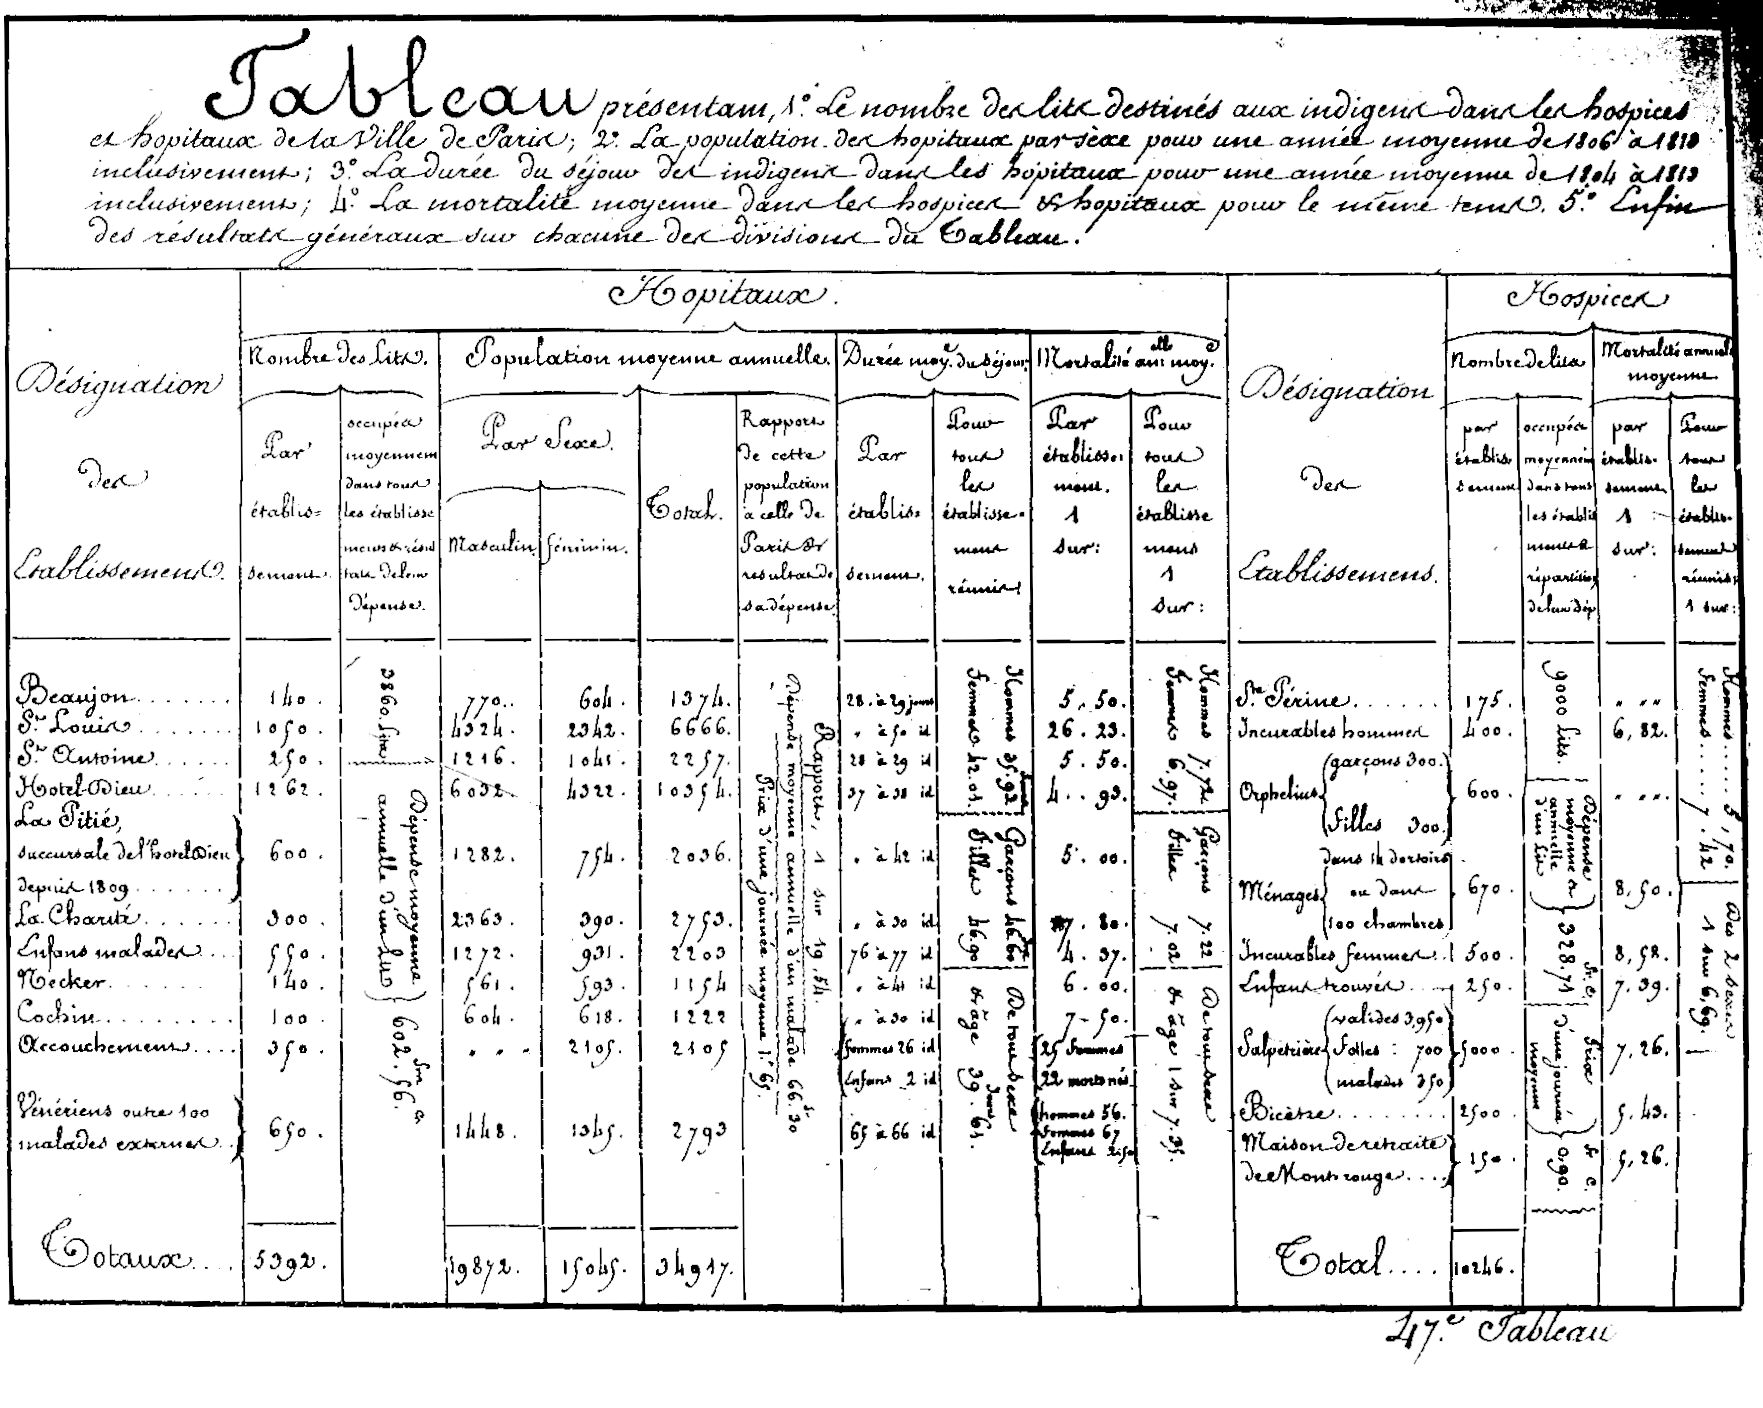 Tableau présentant, 1° Le nombre des lits destinés aux indigens dans les hospices
et hopitaux de la Ville de Paris; 2° La population des hopitaux par sèxe pour une année moyenne de 1806 à 1818
inclusivement; 3° La durée du séjour des indigens dans les hôpitaux pour une année moyenne de 1804 à 1813
inclusivement; 4° La mortalité moyenne dans les hospices & hopitaux pour le même tems. 5° Enfin
des résultats généraux sur chacune des divisions du Tableau.
Hopitaux. Hospices
Désignation des Etablissemens.
Nombre des Lits. Population moyenne annuelle. Durée moy.e du séjour. Mortalité ann.lle moy.e
Par établissement.
occupés moyennem dans tous les établissemens & résultats de leur dépense.
Par Sexe. Masculin. féminin. Total.
Rapport de cette population à celle de Paris & résultat de sa dépense
Par établissement.
Pour tous les établissemens réunis
Par établissement. 1 sur:
Pour tous les établissemens 1 sur:
Désignation des Etablissemens.
Nombre de lits Mortalité annuelle moyenne
par établissement
occupés moyennem dans tous les établissemens & répartition de leur dép
par établissement 1 sur:
Pour tous les établissemens réunis 1 sur:
Beaujon....... 140. 770. 604. 1374. 28 à 29 jours 5.50.
St. Louis....... 1050. 4324. 2342. 6666. " à 50 id 26.23.
St. Antoine...... 250. 1216. 1041. 2257. 28 à 29 id 5.50.
Hotel-Dieu...... 1262. 6032. 4322. 10354. 37 à 38 id 4.93.
La Pitié,
succursale de l'hotel Dieu 600. 1282. 754. 2036. " à 42 id 5.00.
depuis 1809......
La Charité...... 300. 2363. 390. 2753. " à 30 id 7.80.
Enfans malades... 550. 1272. 931. 2203 76 à 77 id 4.37.
Necker...... 140. 561. 593. 1154 " à 41 id 6.00.
Cochin........ 100. 604. 618. 1222 " à 30 id 7.50.
Accouchement.... 350. " " " 2105. 2105 femmes 26 id 25 femmes
Enfans 2 id 22 morts nés
Vénériens outre 100
malades externes.. 650. 1448. 1345. 2793 65 à 66 id hommes 56.
femmes 67
Enfans 2.50
Totaux.... 5392. 19872. 15045. 34917.
3860. Lits
Dépense moyenne annuelle d'un Lit } 602.fm 56.c
Rapport, 1 sur 19.54.
Dépense moyenne annuelle d'un malade 66.fr 30
Prix d'une journée moyenne 1.f 65.
Hommes 35.92 jours
Femmes 42.01.
Garçons 46.60
Filles 46.90
De tout sexe & âge 39.jours 61.
Hommes 7.72
Femmes 6.97.
Garçons 7.22
Filles 7.02
De tout sexe & âge 1 sur 7.35.
Ste. Périne....... 175. " " "
Incurables hommes 400. 6,82.
Orphelins { garçons 300. filles 300. } 600. " " "
Ménages { dans 14 dortoirs ou dans 100 chambres } 670. 8,50.
Incurables femmes.. 500. 8,58.
Enfans trouvés.... 250. 7.39.
Salpétrière { valides 3,950 Folles: 700 malades 350 } 5000. 7,26.
Bicêtre........ 2500. 5.43.
Maison de retraite
de Montrouge.... } 150. 5,26.
Total.... 10246.
9000 lits.
Dépense moyenne & annuelle d'un lit } 328.fr 71 c.
Prix d'une journée moyenne } fr 0,90. c.
Hommes..... 5,70.
Femmes..... 7.42
Des 2 sexes 1 sur 6,69.
47.e Tableau